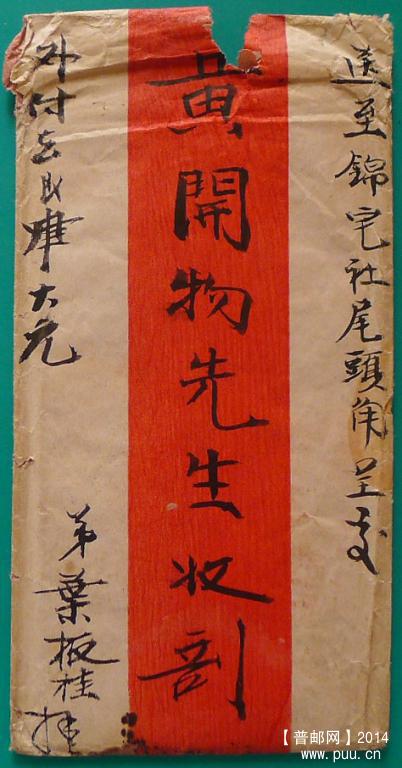 送至錦宅社尾頭角呈交
黃開物先生收剖
外付去艮大元
弟葉板桂拜
【普邮网】2014
www.puu.cn